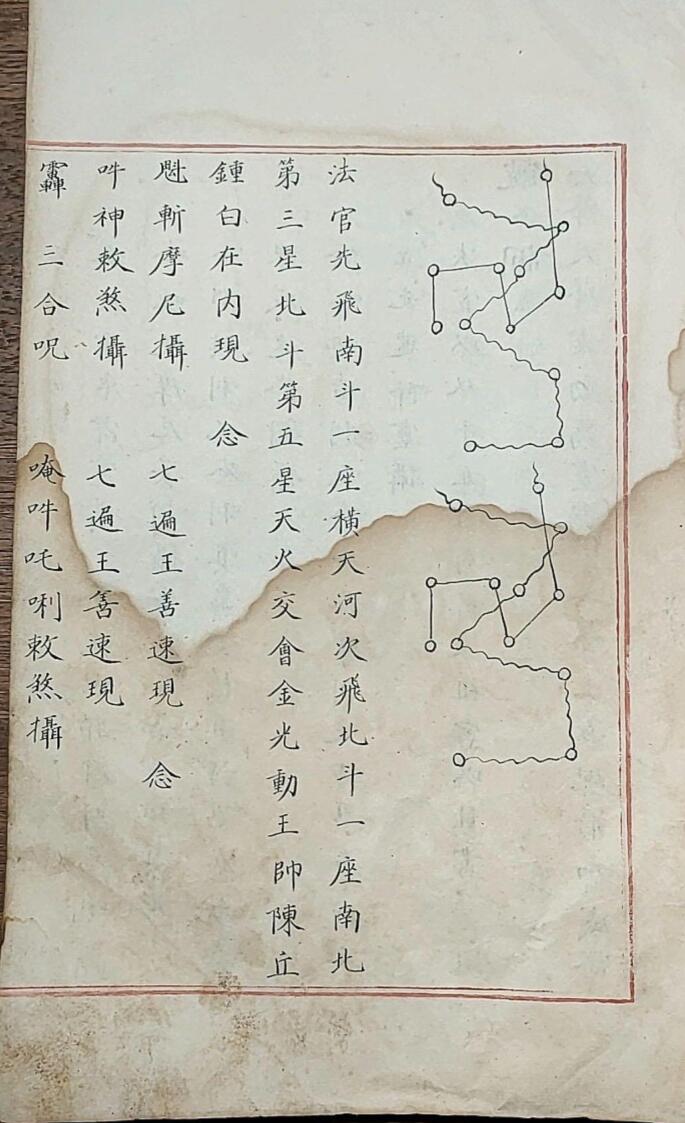 法官先飛南斗一座橫天河次飛北斗一座南北
第三星北斗第五星天火交會金光動王帥陳丘
鍾白在內現　念
魁斬摩尼攝　七遍王善速現　念
吽神敕煞攝　七遍王善速現
三合呪　唵吽吒唎敕煞攝